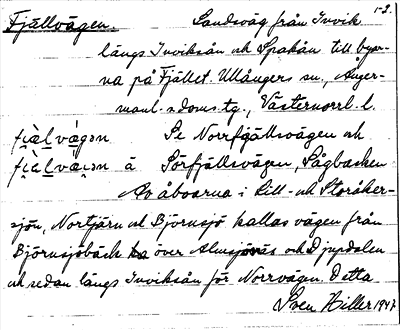 Fjällvägen. Landsväg från Invik 1-2.
längs Inviksån och Spakån till byar-
na på Fjället. Ullångers sn., Ånger-
manl. s. doms. tg., Västernorrl. l.
Se Norrfjällsvägen och
Sörfjällsvägen, Sågbacken
Av åboarna i Lill- och Storåker-
sjön, Nortjärn och Björnsjö kallas vägen från
Björnsjöbäck över Almsjönäs och Djupdalen
och sedan längs Inviksån för Norrvägen. Detta
Sven Hiller 1947